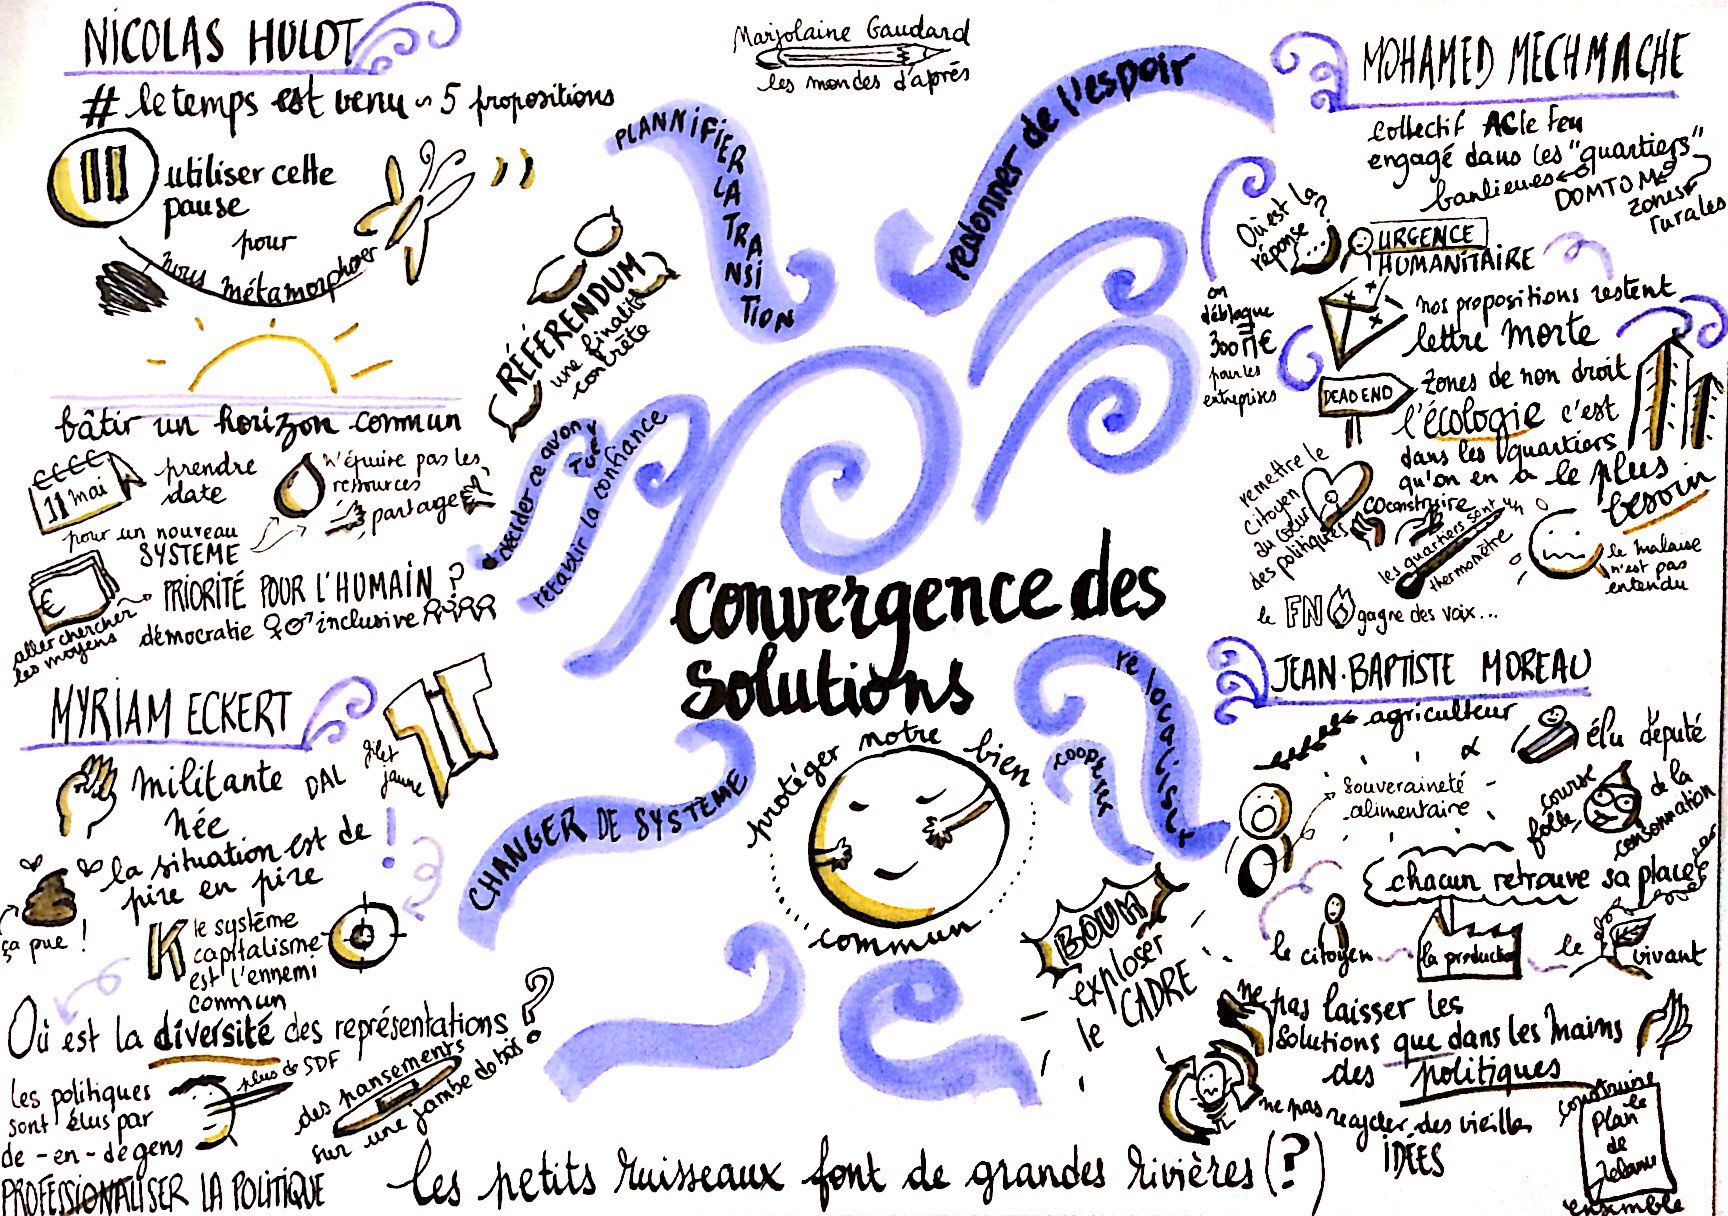 Marjolaine Gaudard
les mondes d'après
NICOLAS HULOT
# le temps est venu ~ 5 propositions
utiliser cette
pause
pour
nous métamorphoser
bâtir un horizon commun
11 mai
prendre
date
n'épuire pas les
ressources
partage
pour un nouveau
SYSTEME
€
aller chercher
les moyens
PRIORITÉ POUR L'HUMAIN ?
démocratie ♀♂ inclusive
RÉFÉRENDUM
une finalité
concrète
PLANNIFIER
LA TRANSITION
redonner de l'espoir
décider ce qu'on
rétablir la confiance
Convergence des
Solutions
protéger notre bien
commun
CHANGER DE SYSTÈME
relocaliser
coopérer
BOUM
exploser
le CADRE
MOHAMED MECHMACHE
collectif AC le feu
engagé dans les "quartiers"
banlieues
DOMTOM
zones
rurales
Où est la
réponse ?
...
URGENCE
HUMANITAIRE
on
débloque
300 M€
pour les
entreprises
nos propositions restent
lettre morte
DEAD END
zones de non droit
l'écologie c'est
dans les quartiers
qu'on en a le plus
besoin
remettre le
citoyen
au coeur
des politiques
coconstruire
les quartiers sont un
thermomètre
le malaise
n'est pas
entendu
le FN gagne des voix...
MYRIAM ECKERT
militante DAL
gilet
jaune
née
la situation est de
pire en pire
!
ça pue !
K le système
capitalisme
est l'ennemi
commun
Où est la diversité des représentations ?
les politiques
sont élus par
de-en-de gens
plus de SDF
des pansements
sur une jambe de bois
PROFESSIONALISER LA POLITIQUE
JEAN-BAPTISTE MOREAU
agriculteur
élu député
souveraineté
alimentaire
course
folle
de la
consommation
chacun retrouve sa place
le citoyen
la production
le vivant
ne pas laisser les
solutions que dans les mains
des politiques
ne pas recycler des vieilles
IDÉES
construire
le
plan
de
ensemble
les petits ruisseaux font de grandes rivières (?)